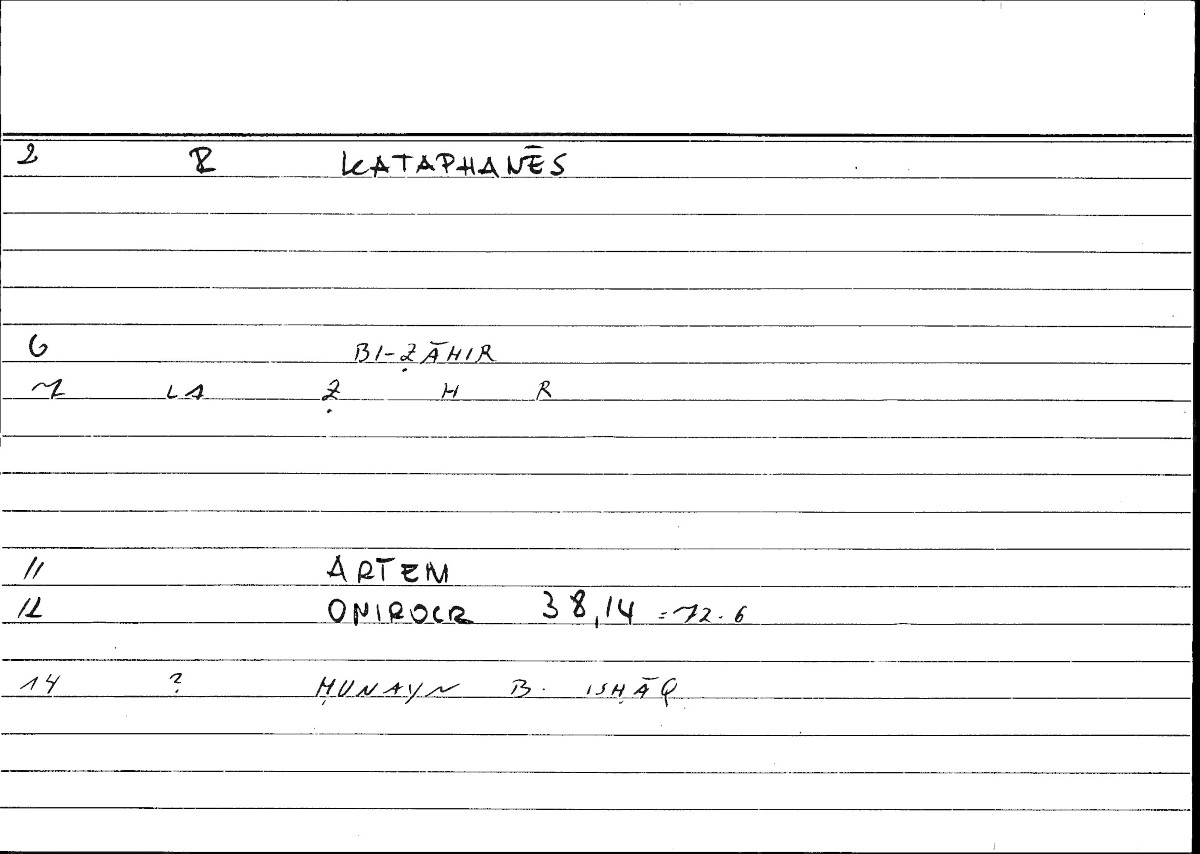 2 R KATAPHANĒS
6 BI-ẒĀHIR
7 LA Ẓ H R
11 ARTEM
12 ONIROCR 38,14 = 72.6
14 ? ḤUNAYN B. ISḤĀQ